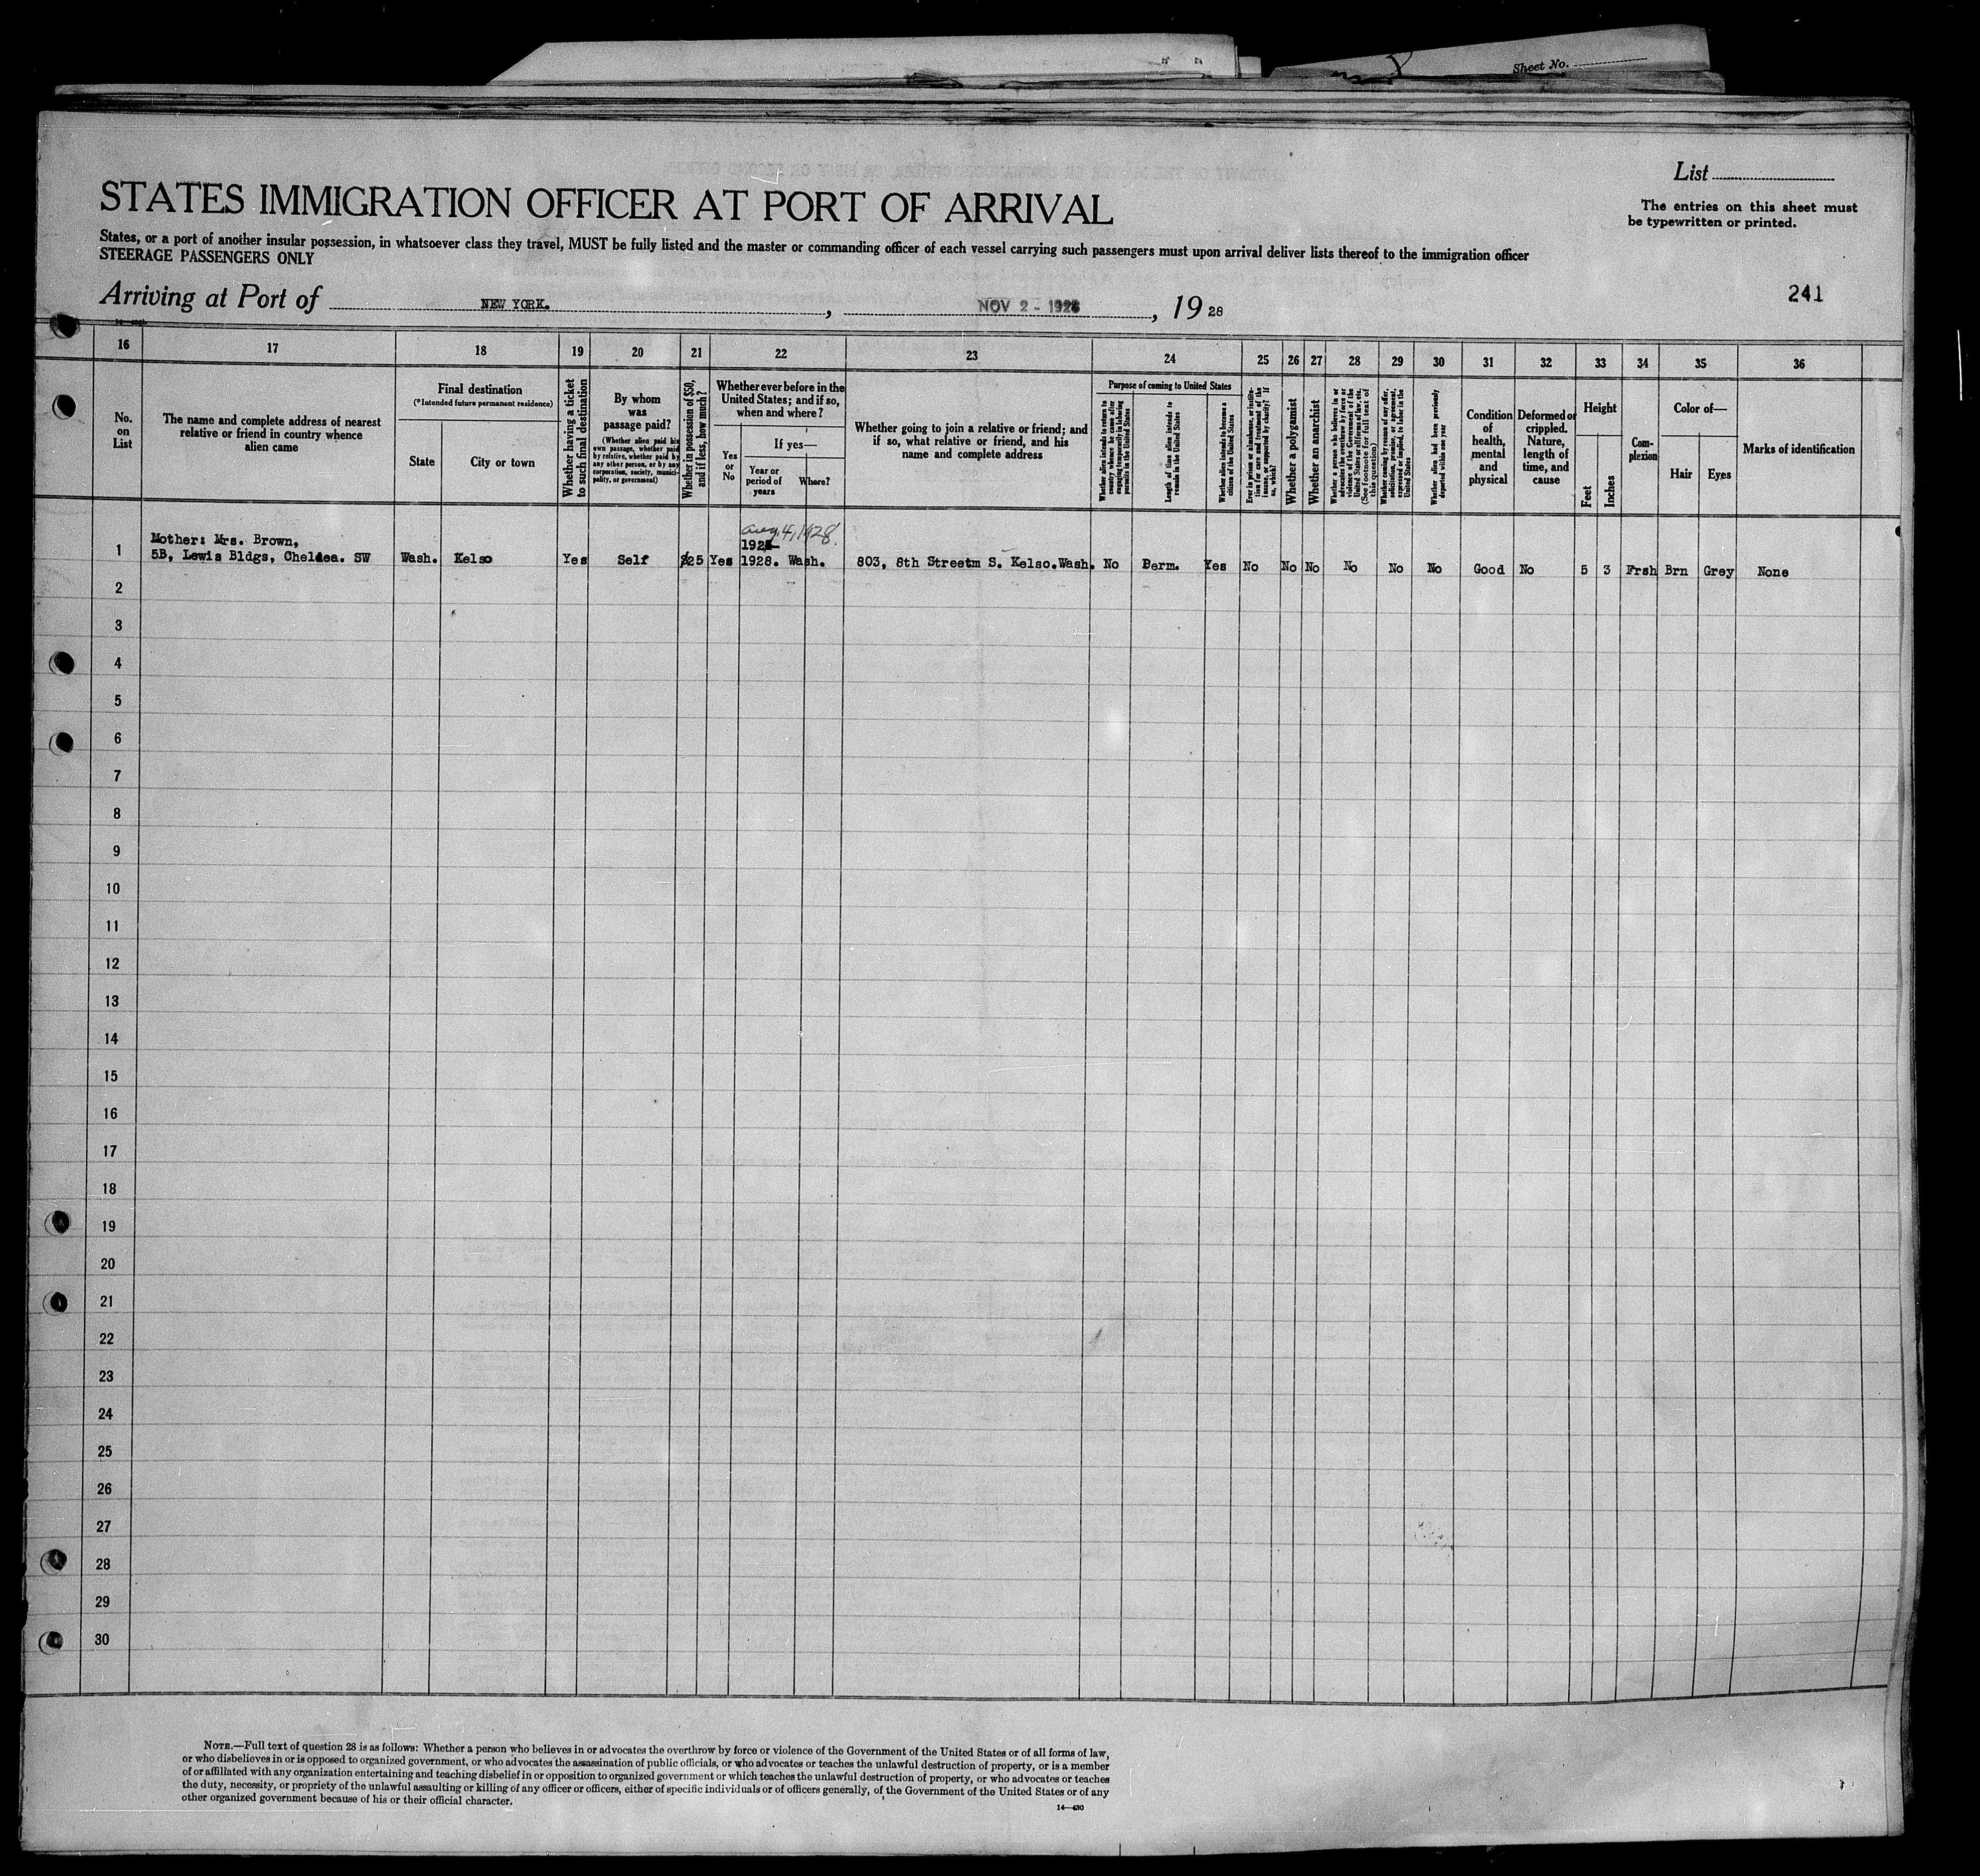 Sheet No.
List
The entries on this sheet must
be typewritten or printed.
STATES IMMIGRATION OFFICER AT PORT OF ARRIVAL
States, or a port of another insular possession, in whatsoever class they travel, MUST be fully listed and the master or commanding officer of each vessel carrying such passengers must upon arrival deliver lists thereof to the immigration officer
STEERAGE PASSENGERS ONLY
Arriving at Port of NEW YORK. , NOV 2 - 1928 , 19 28
241
16 17 18 19 20 21 22 23 24 25 26 27 28 29 30 31 32 33 34 35 36
No.
on
List
The name and complete address of nearest
relative or friend in country whence
alien came
Final destination
(*Intended future permanent residence)
State
City or town
Whether having a ticket
to such final destination
By whom
was
passage paid?
(Whether alien paid his
own passage, whether paid
by relative, whether paid by
any other person, or by any
corporation, society, munici-
pality, or government)
Whether in possession of $50,
and if less, how much?
Whether ever before in the
United States; and if so,
when and where?
Yes
or
No
If yes—
Year or
period of
years
Where?
Whether going to join a relative or friend; and
if so, what relative or friend, and his
name and complete address
Purpose of coming to United States
Whether alien intends to return to
country whence he came after
engaging temporarily in laboring
pursuits in the United States
Length of time alien intends to
remain in the United States
Whether alien intends to become a
citizen of the United States
Ever in prison or almshouse, or institu-
tion for care and treatment of the
insane, or supported by charity? If
so, which?
Whether a polygamist
Whether an anarchist
Whether a person who believes in or
advocates the overthrow by force or
violence of the Government of the
United States or all forms of law, etc.
(See footnote for full text of
this question)
Whether coming by reason of any offer,
solicitation, promise, or agreement,
expressed or implied, to labor in the
United States
Whether alien had been previously
deported within one year
Condition
of
health,
mental
and
physical
Deformed or
crippled.
Nature,
length of
time, and
cause
Height
Feet
Inches
Com-
plexion
Color of—
Hair
Eyes
Marks of identification
Aug. 4, 1928.
Mother: Mrs. Brown,
1 5B, Lewis Bldgs, Cheldea. SW Wash. Kelso Yes Self $25 Yes 1928. Wash. 803, 8th Streetm S. Kelso.Wash. No Perm. Yes No No No No No No Good No 5 3 Frsh Brn Grey None
2
3
4
5
6
7
8
9
10
11
12
13
14
15
16
17
18
19
20
21
22
23
24
25
26
27
28
29
30
NOTE.—Full text of question 28 is as follows: Whether a person who believes in or advocates the overthrow by force or violence of the Government of the United States or of all forms of law,
or who disbelieves in or is opposed to organized government, or who advocates the assassination of public officials, or who advocates or teaches the unlawful destruction of property, or is a member
of or affiliated with any organization entertaining and teaching disbelief in or opposition to organized government or which teaches the unlawful destruction of property, or who advocates or teaches
the duty, necessity, or propriety of the unlawful assaulting or killing of any officer or officers, either of specific individuals or of officers generally, of the Government of the United States or of any
other organized government because of his or their official character.
14—430